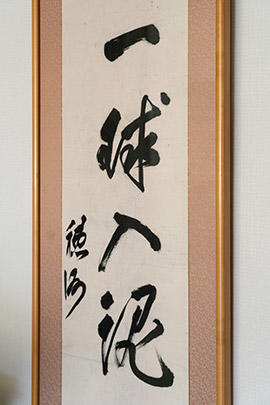 一球入魂
穂洲